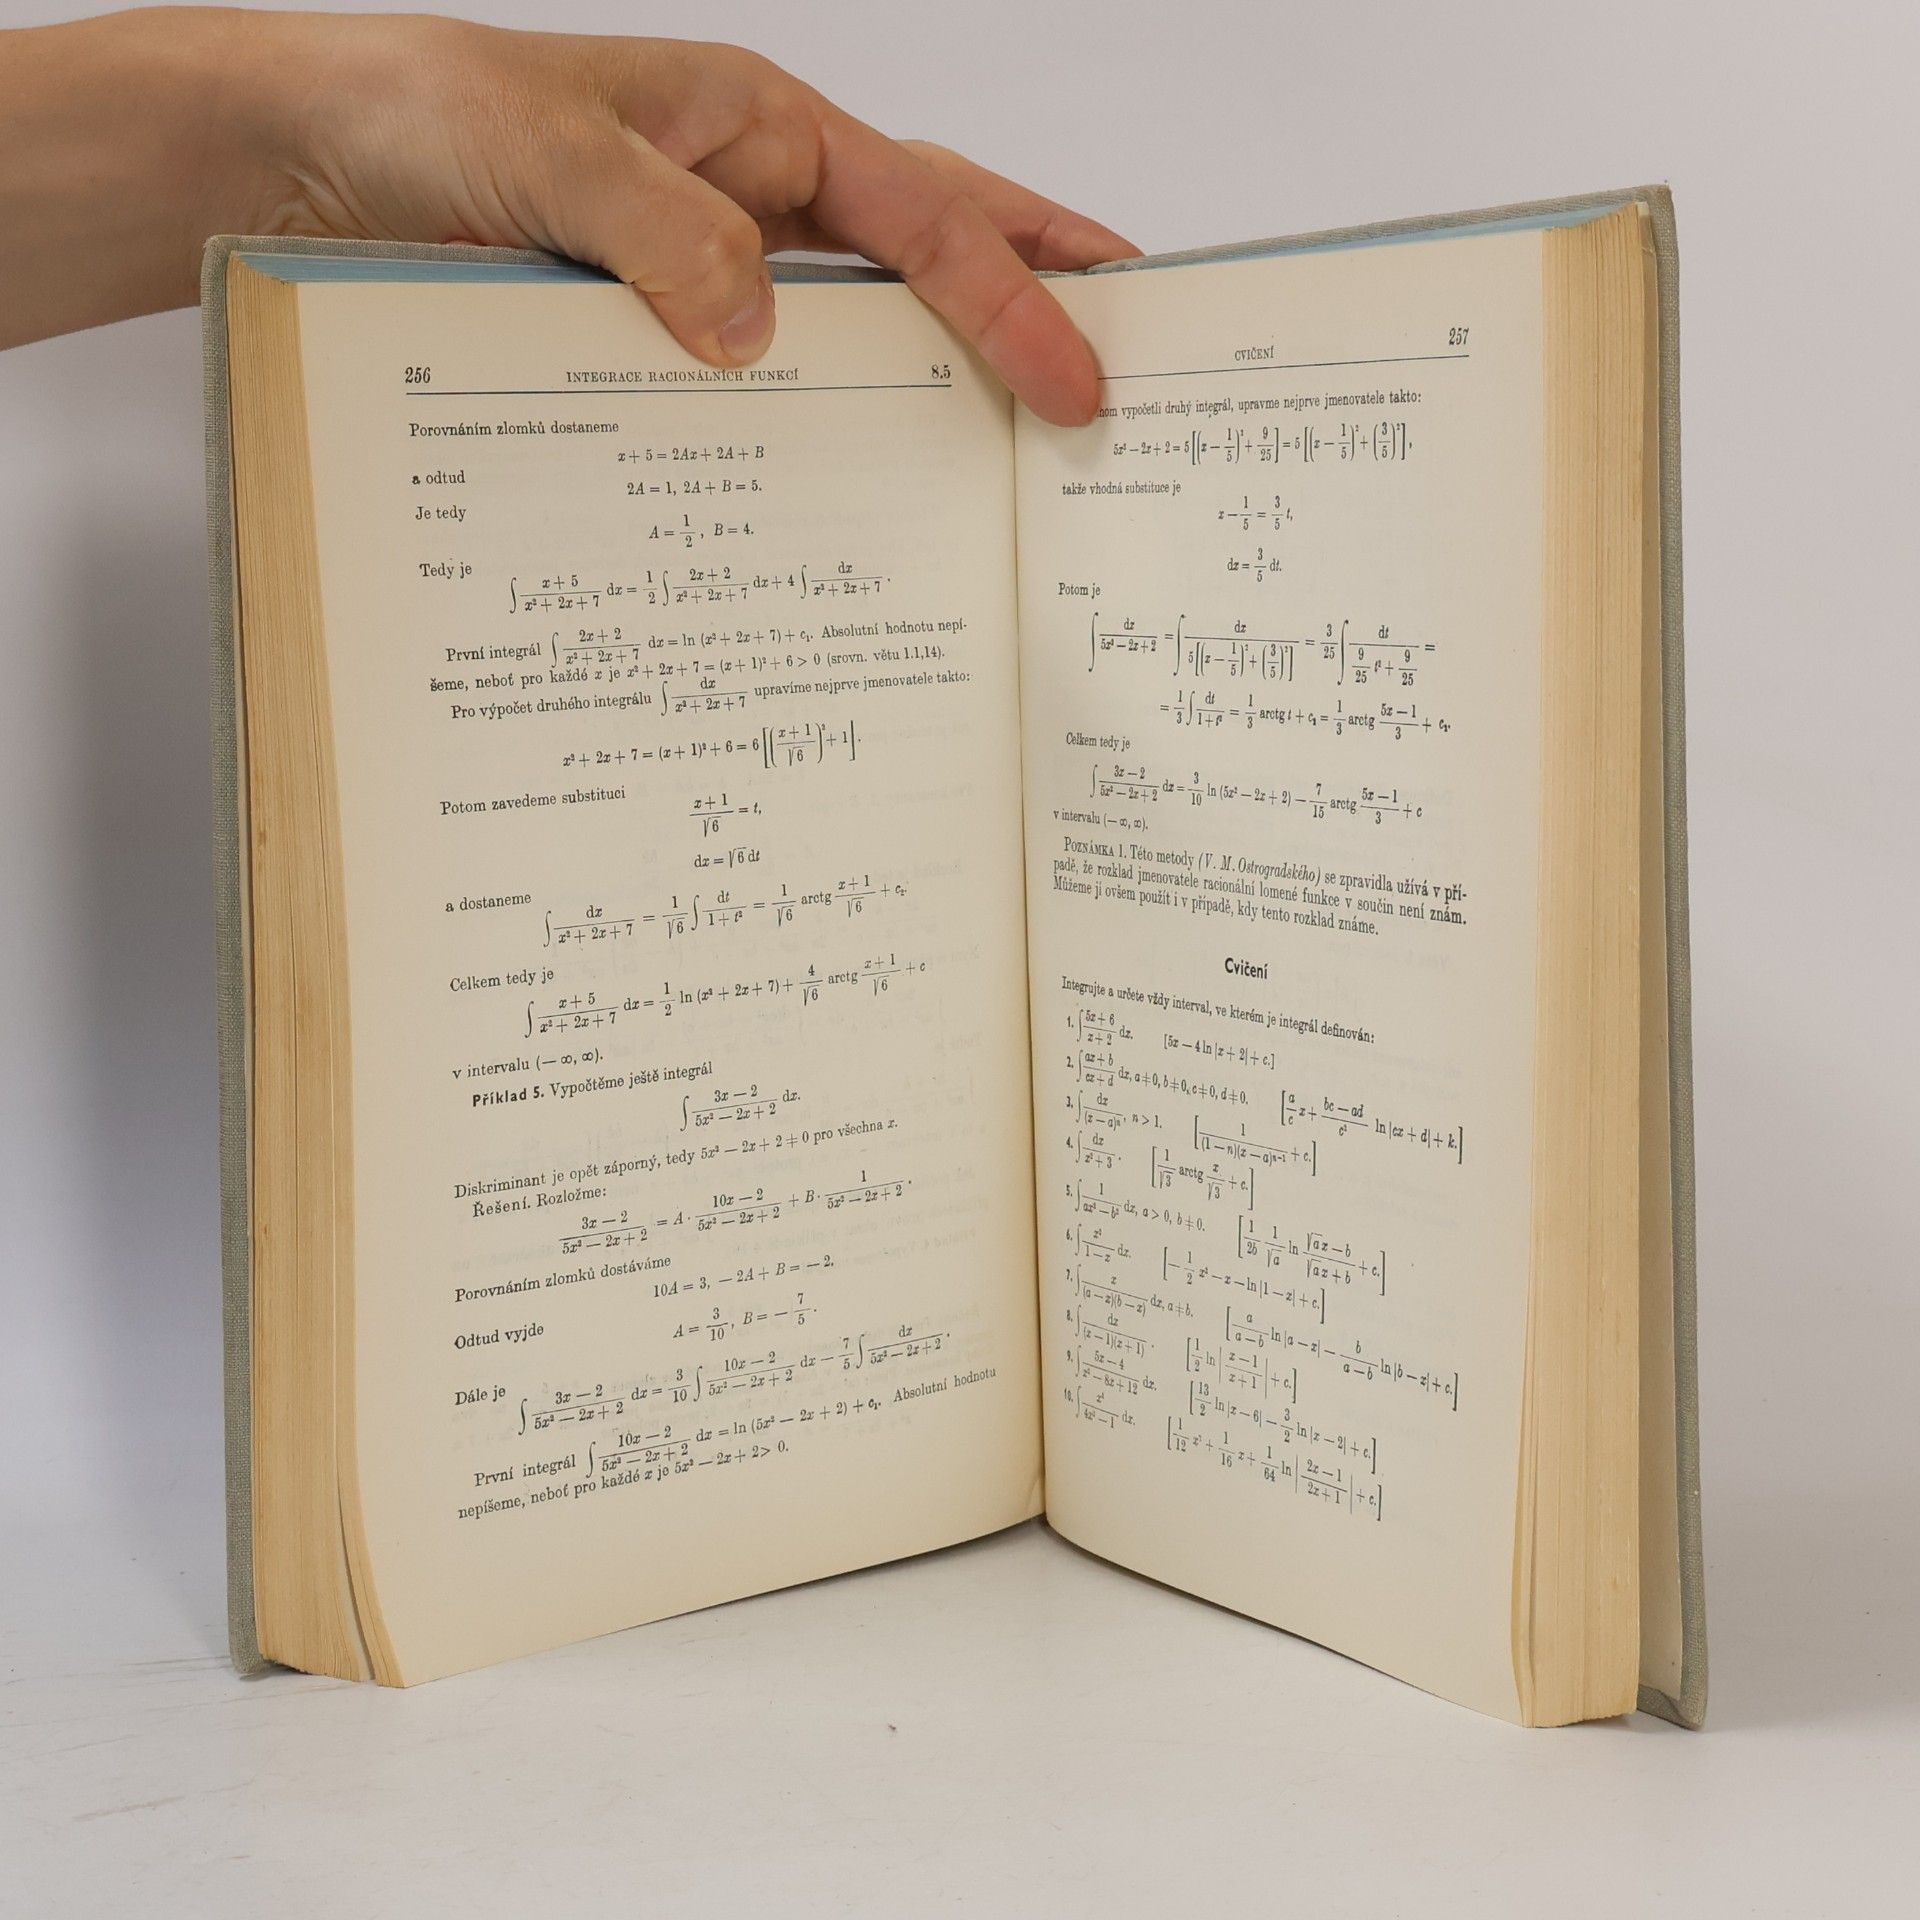 256 INTEGRACE RACIONÁLNÍCH FUNKCÍ 8.5
Porovnáním zlomků dostaneme
x + 5 = 2Ax + 2A + B
a odtud
2A = 1, 2A + B = 5.
Je tedy
A = 1/2, B = 4.
Tedy je
∫ (x + 5)/(x² + 2x + 7) dx = 1/2 ∫ (2x + 2)/(x² + 2x + 7) dx + 4 ∫ dx/(x² + 2x + 7).
První integrál ∫ (2x + 2)/(x² + 2x + 7) dx = ln (x² + 2x + 7) + c₁. Absolutní hodnotu nepí-
šeme, neboť pro každé x je x² + 2x + 7 = (x + 1)² + 6 > 0 (srovn. větu 1.1,14).
Pro výpočet druhého integrálu ∫ dx/(x² + 2x + 7) upravíme nejprve jmenovatele takto:
x² + 2x + 7 = (x + 1)² + 6 = 6 [((x + 1)/√6)² + 1].
Potom zavedeme substituci
(x + 1)/√6 = t,
dx = √6 dt
a dostaneme
∫ dx/(x² + 2x + 7) = 1/√6 ∫ dt/(1 + t²) = 1/√6 arctg (x + 1)/√6 + c₂.
Celkem tedy je
∫ (x + 5)/(x² + 2x + 7) dx = 1/2 ln (x² + 2x + 7) + 4/√6 arctg (x + 1)/√6 + c
v intervalu (— ∞, ∞).
Příklad 5. Vypočtěme ještě integrál
∫ (3x — 2)/(5x² — 2x + 2) dx.
Diskriminant je opět záporný, tedy 5x² — 2x + 2 ≠ 0 pro všechna x.
Řešení. Rozložme:
(3x — 2)/(5x² — 2x + 2) = A · (10x — 2)/(5x² — 2x + 2) + B · 1/(5x² — 2x + 2).
Porovnáním zlomků dostáváme
10A = 3, — 2A + B = — 2.
Odtud vyjde
A = 3/10, B = — 7/5.
Dále je
∫ (3x — 2)/(5x² — 2x + 2) dx = 3/10 ∫ (10x — 2)/(5x² — 2x + 2) dx — 7/5 ∫ dx/(5x² — 2x + 2).
První integrál ∫ (10x — 2)/(5x² — 2x + 2) dx = ln (5x² — 2x + 2) + c₁. Absolutní hodnotu
nepíšeme, neboť pro každé x je 5x² — 2x + 2 > 0.
CVIČENÍ 257
vypočetli druhý integrál, upravme nejprve jmenovatele takto:
5x² — 2x + 2 = 5 [(x — 1/5)² + 9/25] = 5 [(x — 1/5)² + (3/5)²],
takže vhodná substituce je
x — 1/5 = 3/5 t,
dx = 3/5 dt.
Potom je
∫ dx/(5x² — 2x + 2) = ∫ dx/(5[(x — 1/5)² + (3/5)²]) = 3/25 ∫ dt/(9/25 t² + 9/25) =
= 1/3 ∫ dt/(1 + t²) = 1/3 arctg t + c₂ = 1/3 arctg (5x — 1)/3 + c₂.
Celkem tedy je
∫ (3x — 2)/(5x² — 2x + 2) dx = 3/10 ln (5x² — 2x + 2) — 7/15 arctg (5x — 1)/3 + c
v intervalu (— ∞, ∞).
POZNÁMKA 1. Této metody (V. M. Ostrogradského) se zpravidla užívá v pří-
padě, že rozklad jmenovatele racionální lomené funkce v součin není znám.
Můžeme jí ovšem použít i v případě, kdy tento rozklad známe.
Cvičení
Integrujte a určete vždy interval, ve kterém je integrál definován:
1. ∫ (5x + 6)/(x + 2) dx. [5x — 4 ln |x + 2| + c.]
2. ∫ (ax + b)/(cx + d) dx, a ≠ 0, b ≠ 0, c ≠ 0, d ≠ 0. [a/c x + (bc — ad)/c² ln |cx + d| + k.]
3. ∫ dx/(x — a)ⁿ, n > 1. [1/((1 — n)(x — a)ⁿ⁻¹) + c.]
4. ∫ dx/(x² + 3). [1/√3 arctg x/√3 + c.]
5. ∫ 1/(ax² — b²) dx, a > 0, b ≠ 0. [1/2b 1/√a ln (√a x — b)/(√a x + b) + c.]
6. ∫ x²/(1 — x) dx. [— 1/2 x² — x — ln |1 — x| + c.]
7. ∫ x/((a — x)(b — x)) dx, a ≠ b. [a/(a — b) ln |a — x| — b/(a — b) ln |b — x| + c.]
8. ∫ dx/((x — 1)(x + 1)). [1/2 ln |(x — 1)/(x + 1)| + c.]
9. ∫ (5x — 4)/(x² — 8x + 12) dx. [13/2 ln |x — 6| — 3/2 ln |x — 2| + c.]
10. ∫ x⁴/(4x² — 1) dx. [1/12 x³ + 1/16 x + 1/64 ln |(2x — 1)/(2x + 1)| + c.]